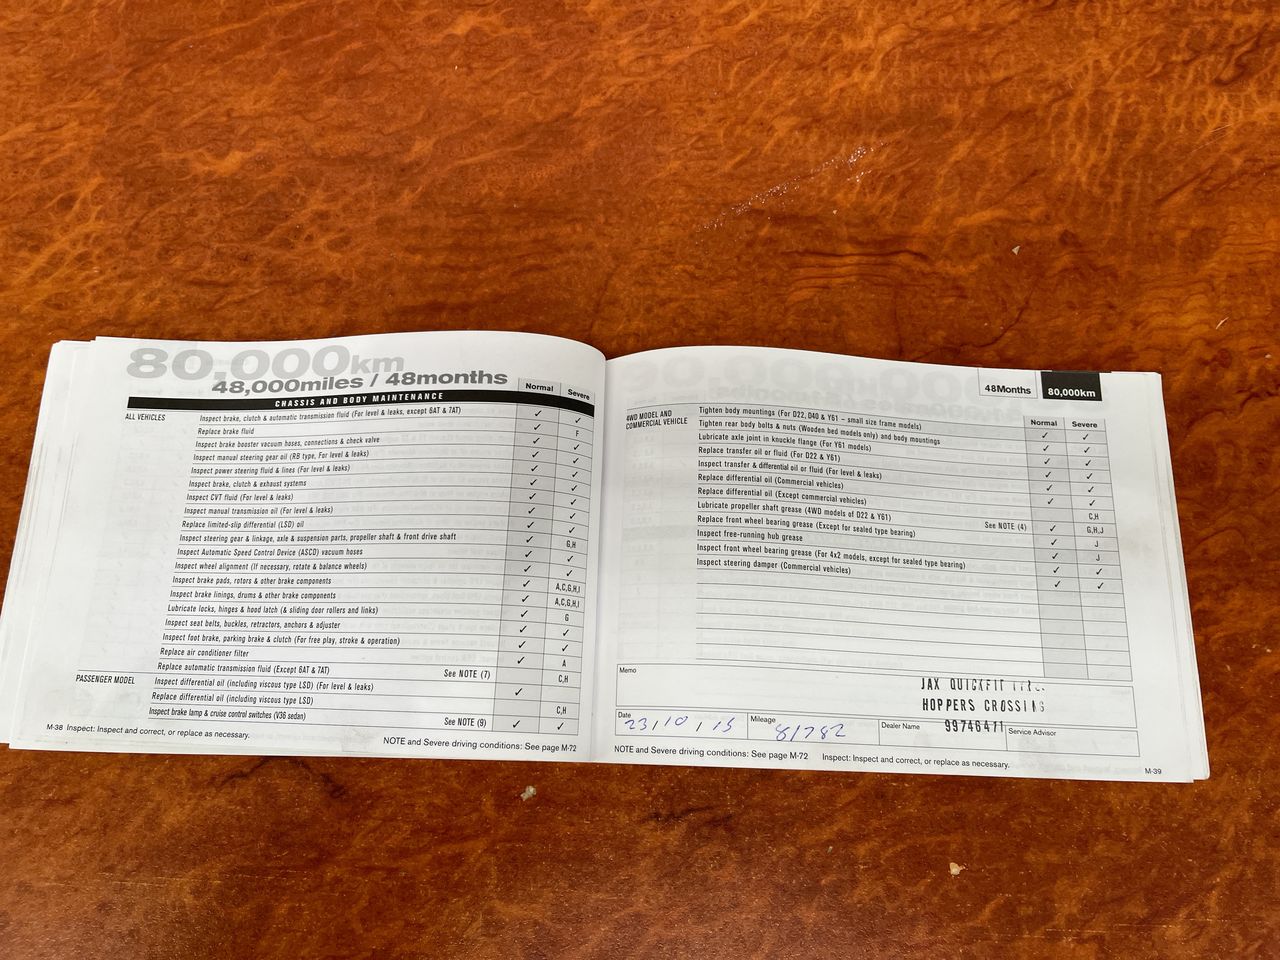 80,000km
48,000miles / 48months
Normal Severe
CHASSIS AND BODY MAINTENANCE
ALL VEHICLES
Inspect brake, clutch & automatic transmission fluid (For level & leaks, except 6AT & 7AT) ✓ ✓
Replace brake fluid ✓ F
Inspect brake booster vacuum hoses, connections & check valve ✓ ✓
Inspect manual steering gear oil (RB type, For level & leaks) ✓ ✓
Inspect power steering fluid & lines (For level & leaks) ✓ ✓
Inspect brake, clutch & exhaust systems ✓ ✓
Inspect CVT fluid (For level & leaks) ✓ ✓
Inspect manual transmission oil (For level & leaks) ✓ ✓
Replace limited-slip differential (LSD) oil ✓ ✓
Inspect steering gear & linkage, axle & suspension parts, propeller shaft & front drive shaft ✓ G,H
Inspect Automatic Speed Control Device (ASCD) vacuum hoses ✓ ✓
Inspect wheel alignment (If necessary, rotate & balance wheels) ✓ ✓
Inspect brake pads, rotors & other brake components ✓ A,C,G,H,I
Inspect brake linings, drums & other brake components ✓ A,C,G,H,I
Lubricate locks, hinges & hood latch (& sliding door rollers and links) ✓ G
Inspect seat belts, buckles, retractors, anchors & adjuster ✓ ✓
Inspect foot brake, parking brake & clutch (For free play, stroke & operation) ✓ ✓
Replace air conditioner filter ✓ A
Replace automatic transmission fluid (Except 6AT & 7AT) See NOTE (7) C,H
PASSENGER MODEL
Inspect differential oil (including viscous type LSD) (For level & leaks) ✓
Replace differential oil (including viscous type LSD) C,H
Inspect brake lamp & cruise control switches (V36 sedan) See NOTE (9) ✓ ✓
M-38 Inspect: Inspect and correct, or replace as necessary.
NOTE and Severe driving conditions: See page M-72
48Months 80,000km
Normal Severe
4WD MODEL AND
COMMERCIAL VEHICLE
Tighten body mountings (For D22, D40 & Y61 – small size frame models) ✓ ✓
Tighten rear body bolts & nuts (Wooden bed models only) and body mountings ✓ ✓
Lubricate axle joint in knuckle flange (For Y61 models) ✓ ✓
Replace transfer oil or fluid (For D22 & Y61) ✓ ✓
Inspect transfer & differential oil or fluid (For level & leaks) ✓ ✓
Replace differential oil (Commercial vehicles) ✓ ✓
Replace differential oil (Except commercial vehicles) C,H
Lubricate propeller shaft grease (4WD models of D22 & Y61) See NOTE (4) ✓ G,H,J
Replace front wheel bearing grease (Except for sealed type bearing) ✓ J
Inspect free-running hub grease ✓ J
Inspect front wheel bearing grease (For 4x2 models, except for sealed type bearing) ✓ ✓
Inspect steering damper (Commercial vehicles) ✓ ✓
Memo
JAX QUICKFIT
HOPPERS CROSSING
99746411
Date 23/10/15 Mileage 81782 Dealer Name Service Advisor
NOTE and Severe driving conditions: See page M-72 Inspect: Inspect and correct, or replace as necessary.
M-39